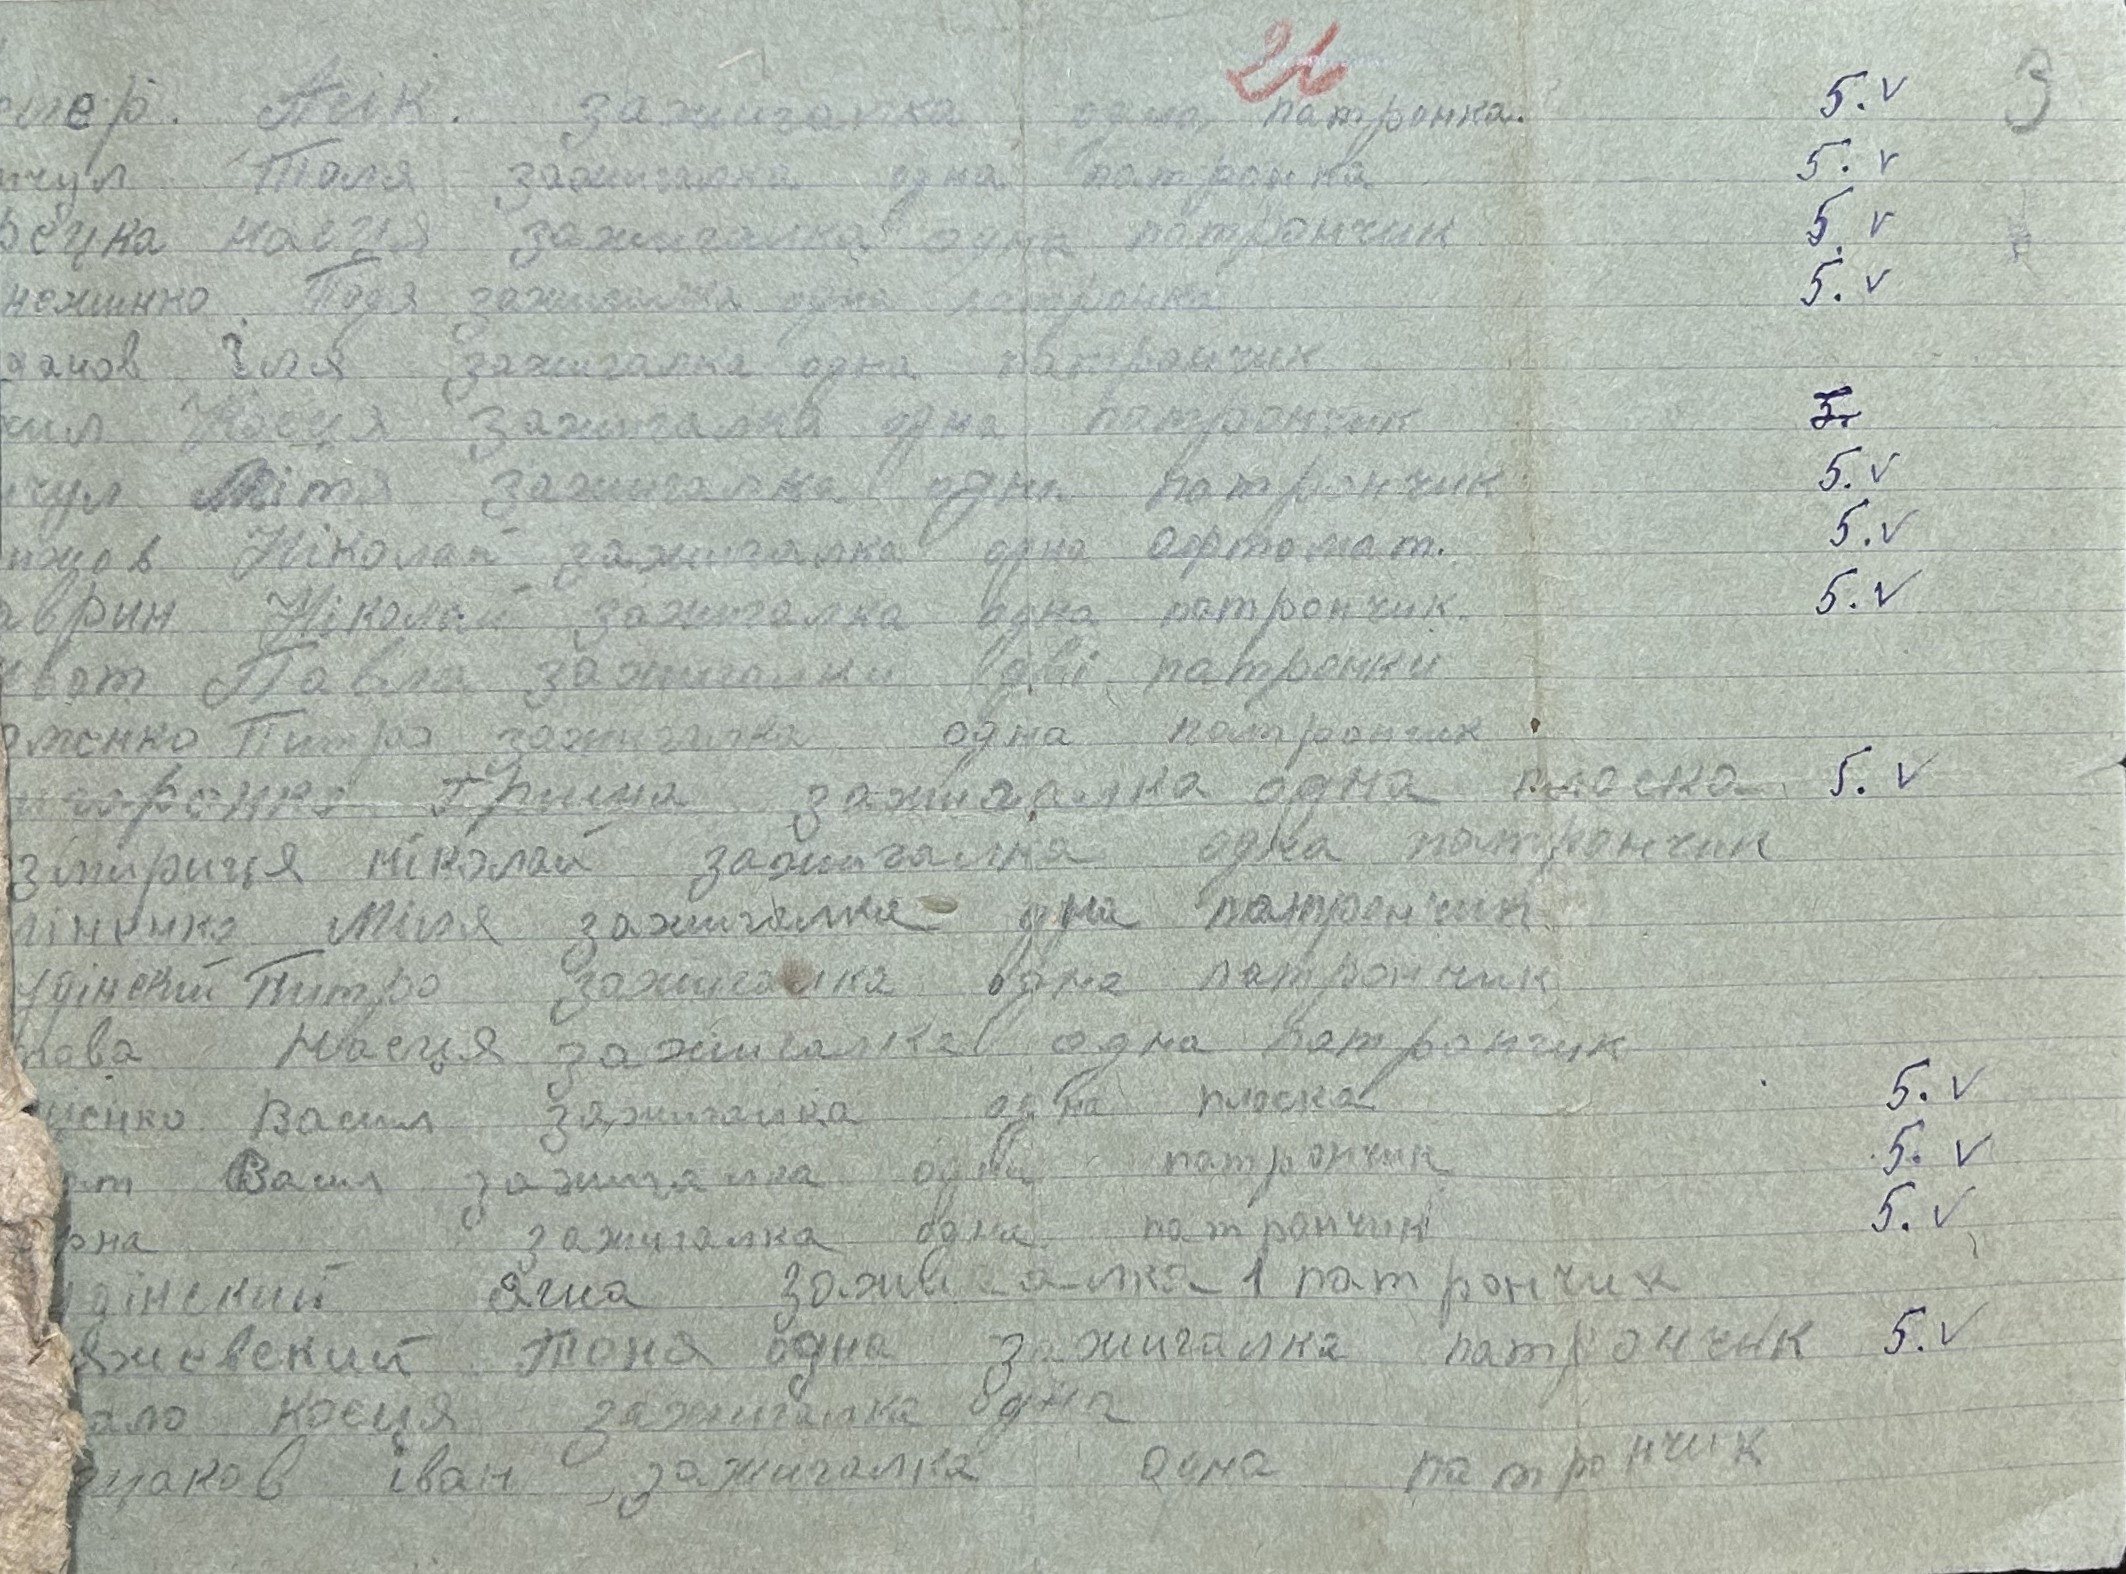 26 3
мер. Аїйк. зажигалка одна патронка. 5.v
чул Толя зажигалка одна патронка 5.v
рецка насця зажигалка одна патрончик 5.v
нежинко Подя зажигалка одна патронка 5.v
анов Іля зажигалка одна патрончик
жил Косця зажигалка одна патрончик 5.
чул Мітя зажигалка одна патрончик 5.v
ижов Ніколай зажигалка одна афтомат. 5.v
аврин Ніколай зажигалка одна патрончик. 5.v
хват Павла зажигалки дві патронки
оменко Питро зажигалка одна патрончик
игоренко Гриша зажигалка одна плоска 5.v
зпириця ніколай зажигалка одна патрончик
ліненко Міля зажигалка дна патрончик
удінский Питро зажигалка одна патрончик
това Насця зажигалка одна патрончик
уценко Васил зажигалка одна плоска 5.v
ат Васил зажигалка одна патрончик 5.v
рна зажигалка одна патрончик 5.v
удінский Яша зажигалка 1 патрончик
яжевский Тоня одна зажигалка патрончик 5.v
ало косця зажигалка одна
цаков іван зажигалка одна патрончик